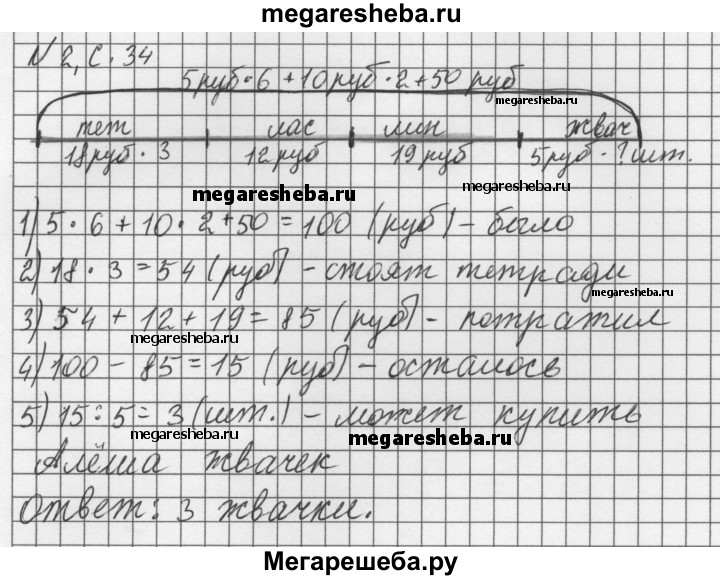 megaresheba.ru
N 2, с. 34
5руб·6 + 10руб·2 + 50 руб
megaresheba.ru
тет лас лин жвач
megaresheba.ru
18руб·3 12руб 19 руб 5руб·?шт.
megaresheba.ru
megaresheba.ru
1) 5·6 + 10·2 + 50 = 100 (руб) - было
2) 18·3 = 54 (руб) - стоят тетради
megaresheba.ru
3) 54 + 12 + 19 = 85 (руб) - потратил
megaresheba.ru
4) 100 - 85 = 15 (руб) - осталось
5) 15:5 = 3 (шт.) - может купить
megaresheba.ru
megaresheba.ru
Алёша жвачек
megaresheba.ru
Ответ: 3 жвачки.
megaresheba.ru
Мегарешеба.ру